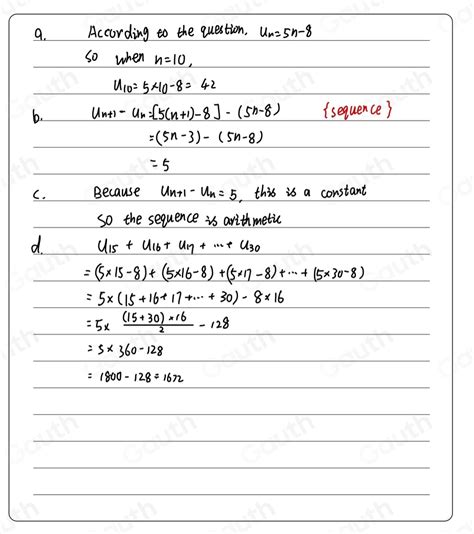 a. According to the question. Un=5n-8
So when n=10,
U10=5×10-8= 42
b. Un+1 - Un=[5(n+1)-8] - (5n-8) {sequence}
=(5n-3)- (5n-8)
=5
c. Because Un+1 - Un=5, this is a constant
So the sequence is arithmetic
d. U15 + U16+ U17 + ... + U30
= (5×15-8)+ (5×16-8) +(5×17-8)+ ... + (5×30-8)
= 5×(15+16+17+...+ 30) - 8×16
=5× (15+30)×16/2 - 128
= 5× 360-128
= 1800-128=1672
Gauth